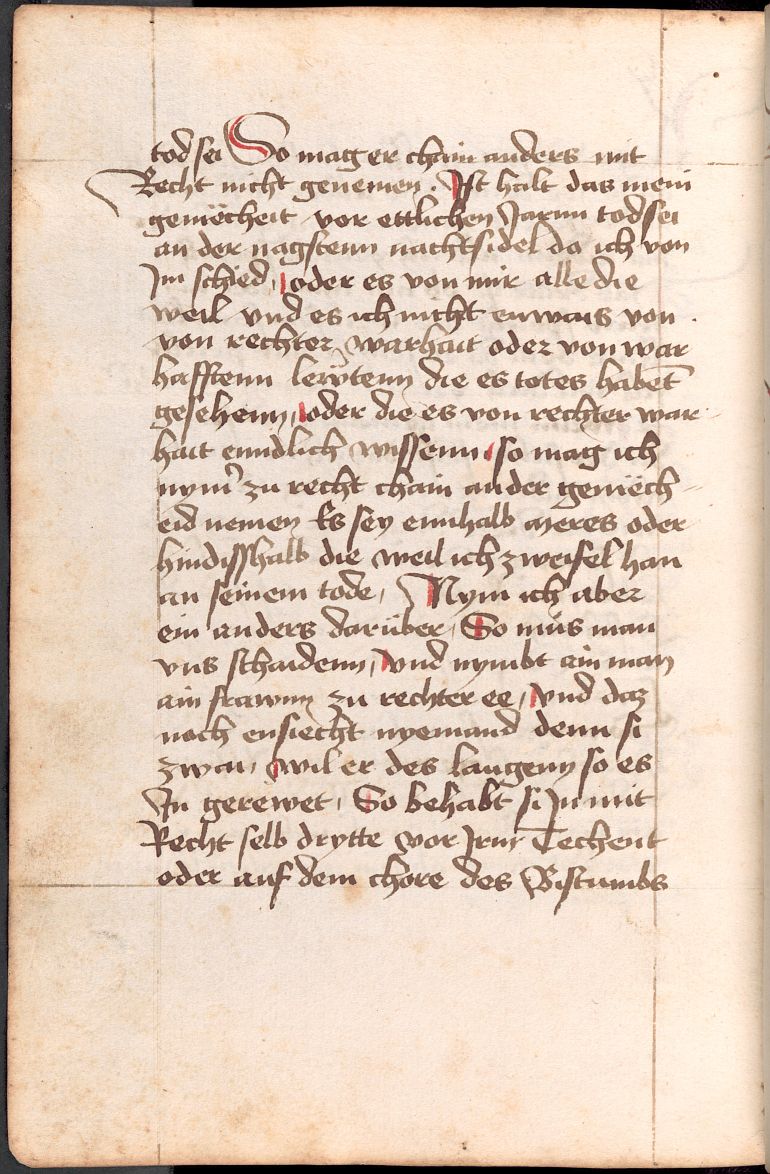 tod sei So mag er chain anders mit
Recht nicht genemen. Ist halt das mein
gemëcheit vor ettlichen Jarnn tod sei
an der nagstenn nachtsidel do ich von
Im schied, oder es von mir alle die
weil vnd es ich nicht enwais von
von rechter warhait oder von war
hafftenn lewtenn die es totes habet
gesehenn, oder die es von rechter war
hait enndlich wissenn, so mag ich
nymer zu recht chain ander gemëch-
eid nemen Es sey ennhalb meres oder
hindisshalb die weil ich zweifel han
an seinem tode, Nym ich aber
ein anders darüber, So müs man
vns schaidenn, vnd nymbt ain man
ain frawnn zu rechter ee, vnd daz
noch ensiecht nyemand denn si
zwai, wil er des laugenn so es
In gerewet, So behabt si In mit
Recht selb drytte vor Irm Techent
oder auf dem chore des Bistumbs